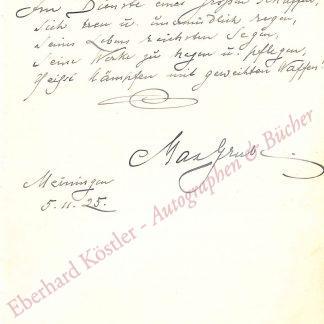 Im Dienste eines großen Schaffers,
Sich treu u. unermüdlich regen,
Seines Lebens reichsten Segen,
Seine Werke zu hegen u. pflegen,
Heißt kämpfen mit geweihten Waffen!
Max Grube
Meiningen
5.11.25.
Eberhard Köstler - Autographen & Bücher